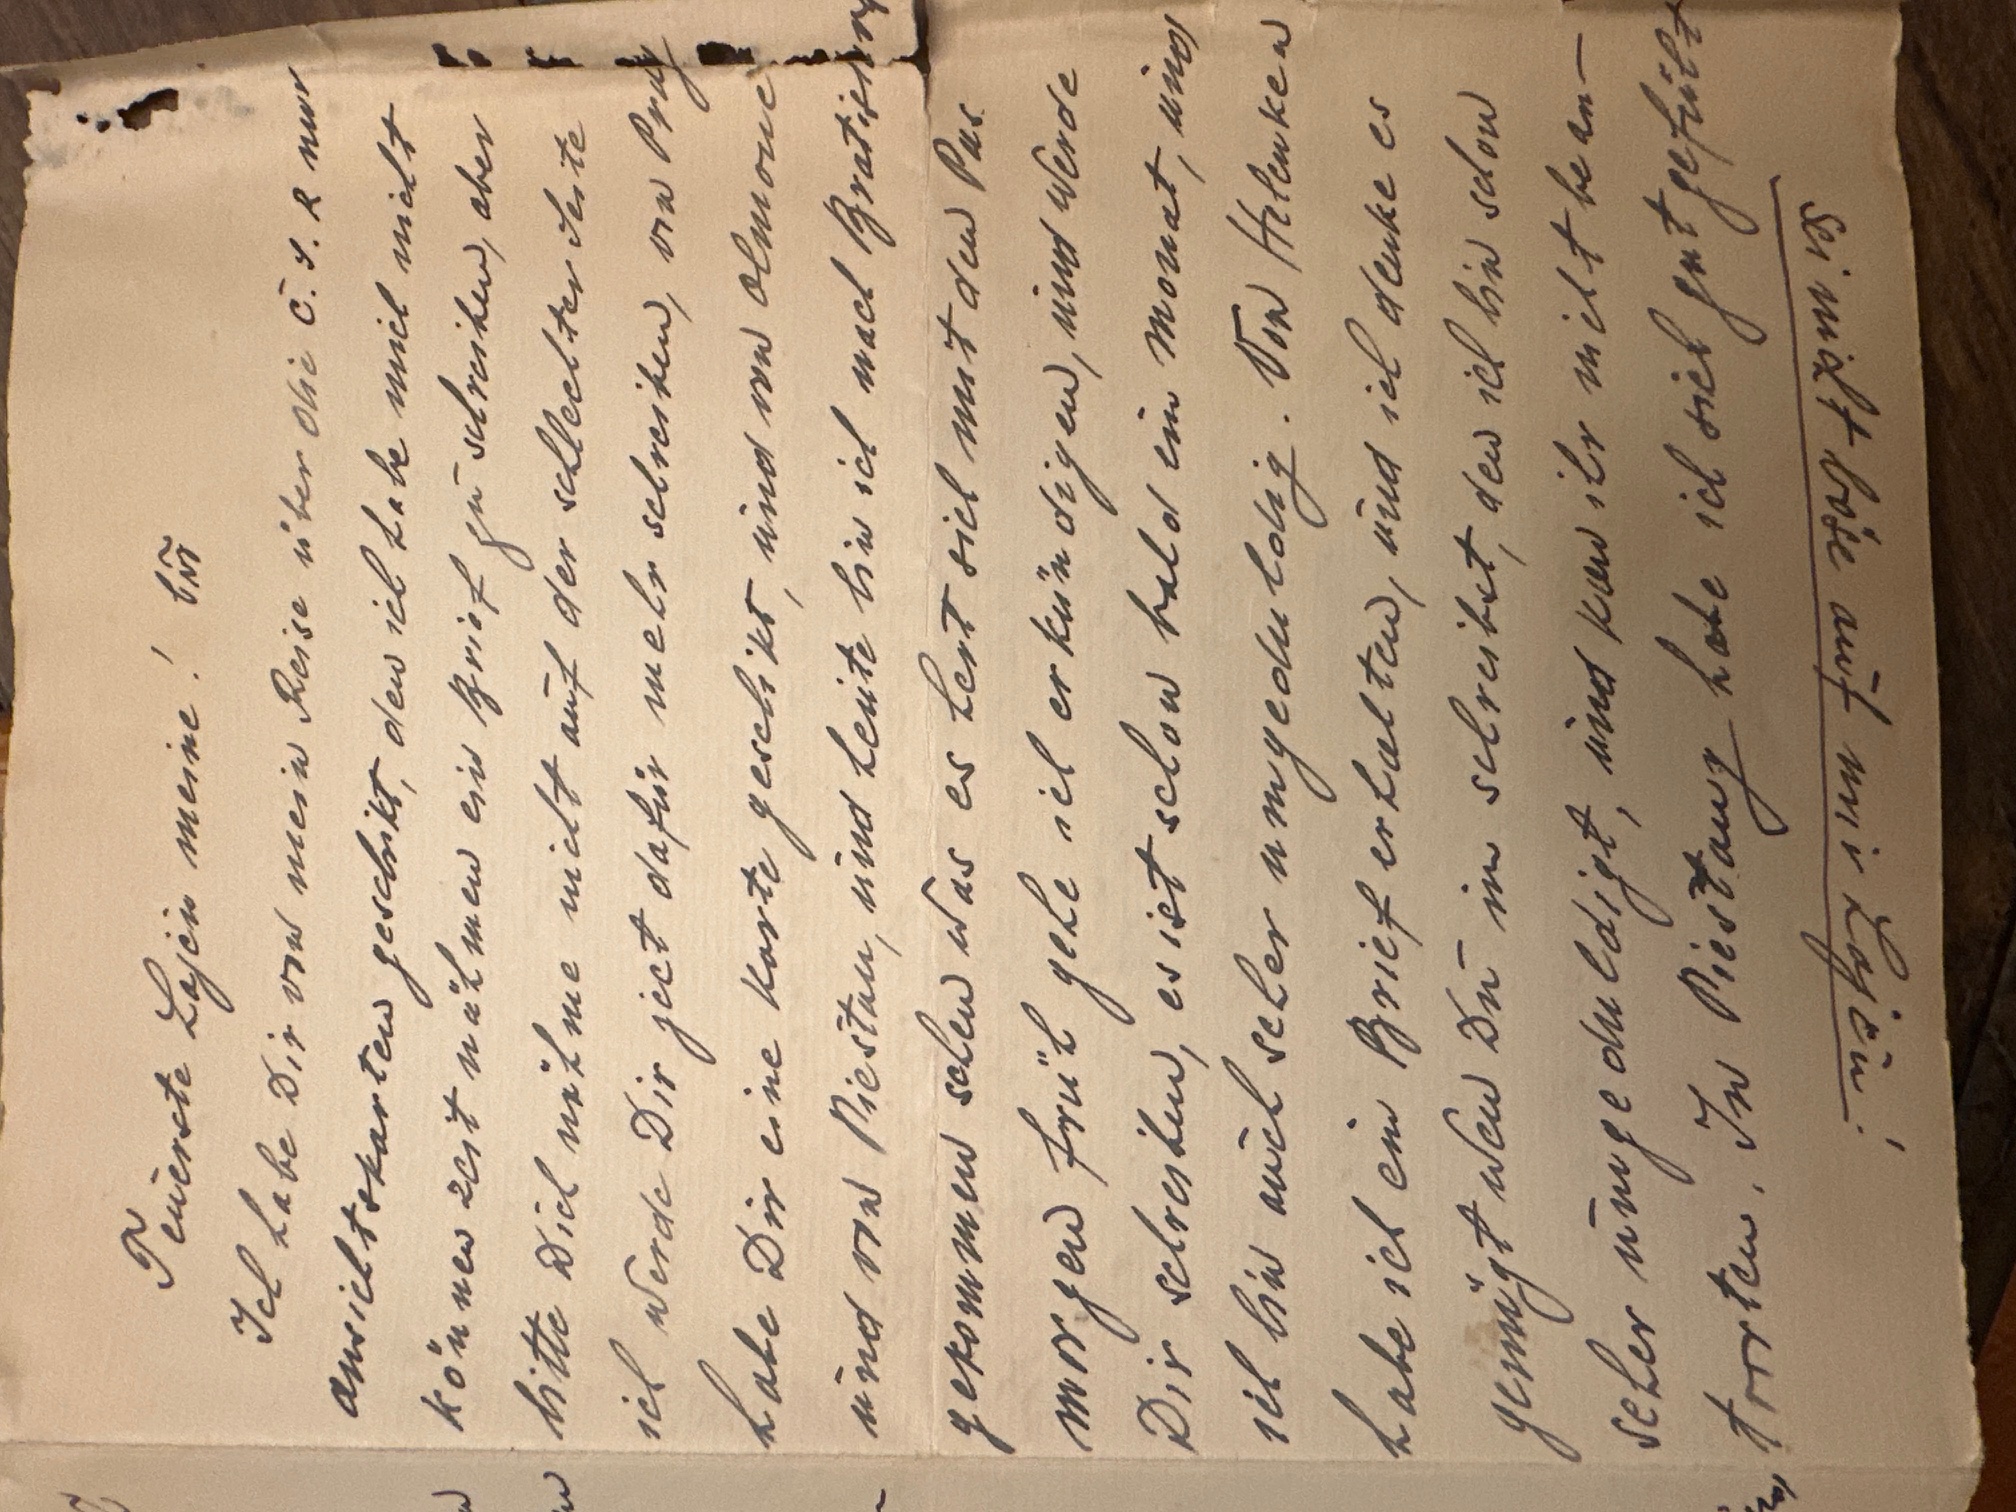 Teüerste Lajen meine!
Ich habe Dir von mein Reise über die Č.S.R nur
ansichtskarten geschikt, den ich habe mich nicht
könen zeit nähmen ein Brief zu schreiben, aber
bitte Dich nähme nicht auf der schlechter Seite
ich werde Dir ject dafür mehr schreiben, von Prag
habe Dir eine karte geschikt, und von Olmouc
und von Piestan, und heute bin ich nach Bratislava
gekommen sehen was es hert sich mit den Pas.
morgen früh gehe ich erkündigen, und werde
Dir schreiben, es ist schon bald ein monat, und
ich bin auch seher ungedulodig. Von Helenken
habe ich ein Brief erhalten, und ich denke es
genügt wen Du in schreibst, den ich bin schon
seher ungeduldigt, und kan ihr nicht bean-
tvorten. In Piestany habe ich sich gut gefühlt
Sei nicht böse auf mir Lajen!